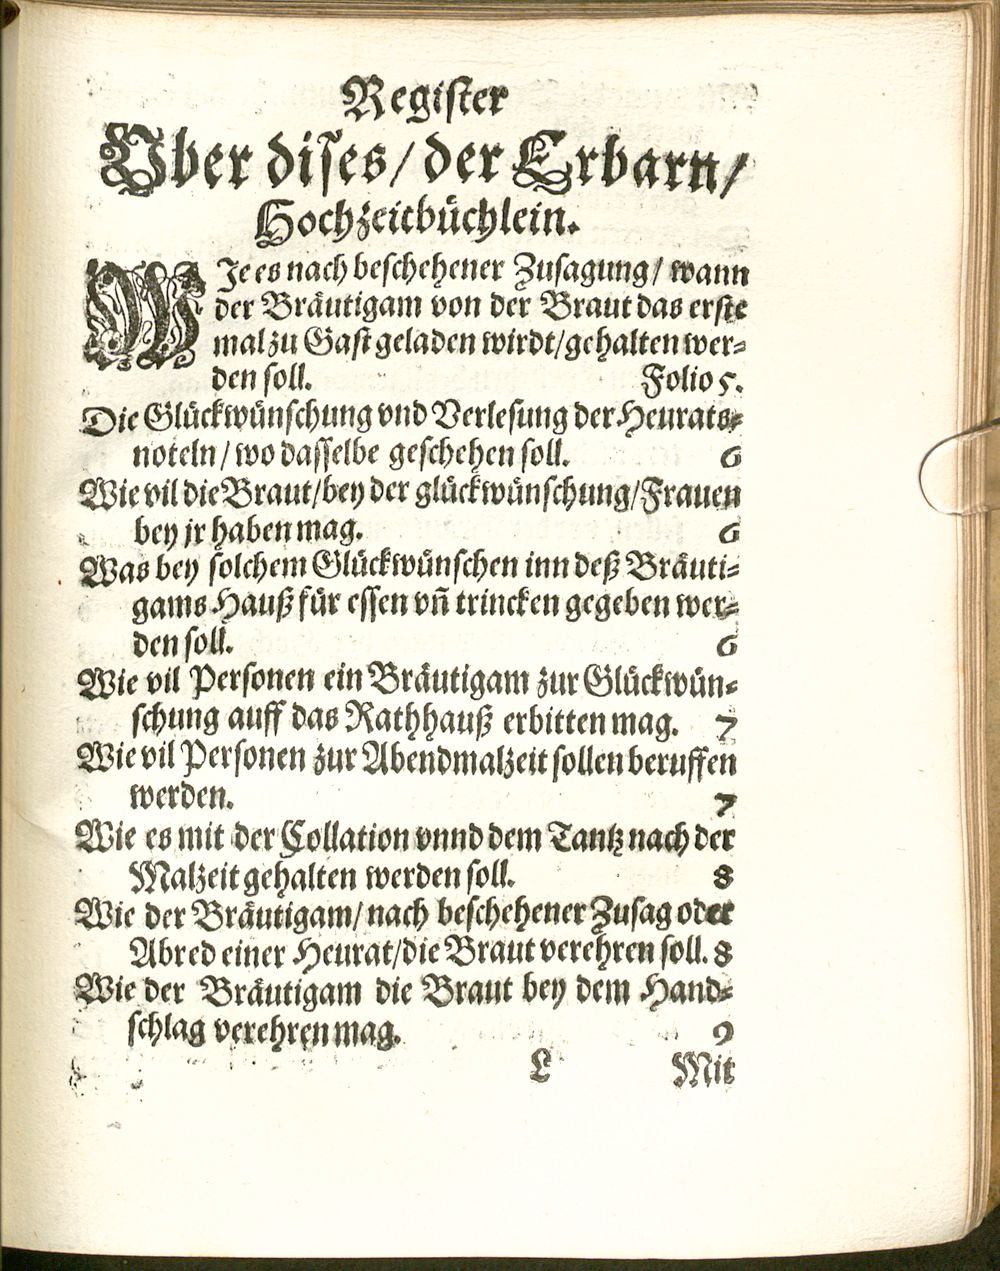 Register
Vber dises/ der Erbarn/
Hochzeitbüchlein.
WJe es nach beschehener Zusagung/ wann
der Bräutigam von der Braut das erste
mal zu Gast geladen wirdt/ gehalten wer⸗
den soll. Folio 5.
Die Glückwünschung vnd Verlesung der Heurats⸗
noteln/ wo dasselbe geschehen soll. 6
Wie vil die Braut/ bey der glückwünschung/ Frauen
bey jr haben mag. 6
Was bey solchem Glückwünschen inn deß Bräuti⸗
gams Hauß für essen vñ trincken gegeben wer⸗
den soll. 6
Wie vil Personen ein Bräutigam zur Glückwün⸗
schung auff das Rathhauß erbitten mag. 7
Wie vil Personen zur Abendmalzeit sollen beruffen
werden. 7
Wie es mit der Collation vnnd dem Tantz nach der
Malzeit gehalten werden soll. 8
Wie der Bräutigam/ nach beschehener Zusag oder
Abred einer Heurat/ die Braut verehren soll. 8
Wie der Bräutigam die Braut bey dem Hand⸗
schlag verehren mag. 9
L Mit